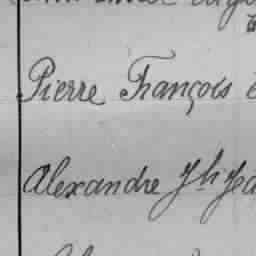 Pierre François
Alexandre Jh Jea